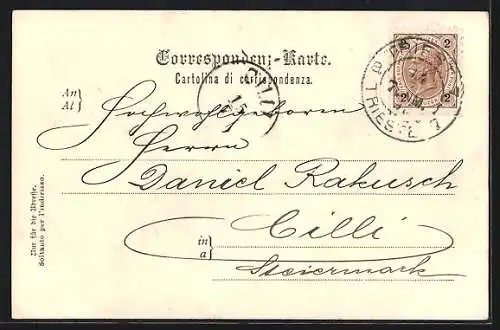 Correspondenz-Karte.
Cartolina di corrispondenza.
An
Al
Hochwohlgeboren
Herrn
Daniel Rakusch
in
a
Cilli
Steiermark
Nur für die Adresse.
Soltanto per l'indirizzo.
2 2
2 2
TRIESTE